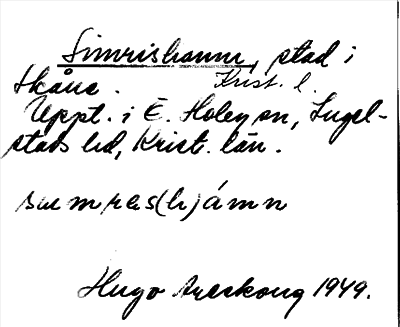 Simrishamn, stad i
Skåne. Krist. l.
Uppt. i Ö. Hoby sn, Ingel-
stads hd, Krist. län.
summras(h)ámn
Hugo Areskoug 1949.